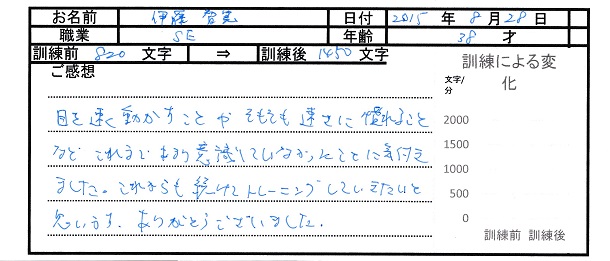 お名前 伊藤 日付 2015 年 8 月 28 日
職業 SE 年齢 38 才
訓練前 820 文字 ⇒ 訓練後 1450 文字
ご感想
訓練による変化
文字/分
2000
1500
1000
500
0
訓練前 訓練後
目を速く動かすことや そもそも速さに慣れること
など これまであまり意識していなかったことに気付き
ました。これからも続けてトレーニングしていきたいと
思います。ありがとうございました.